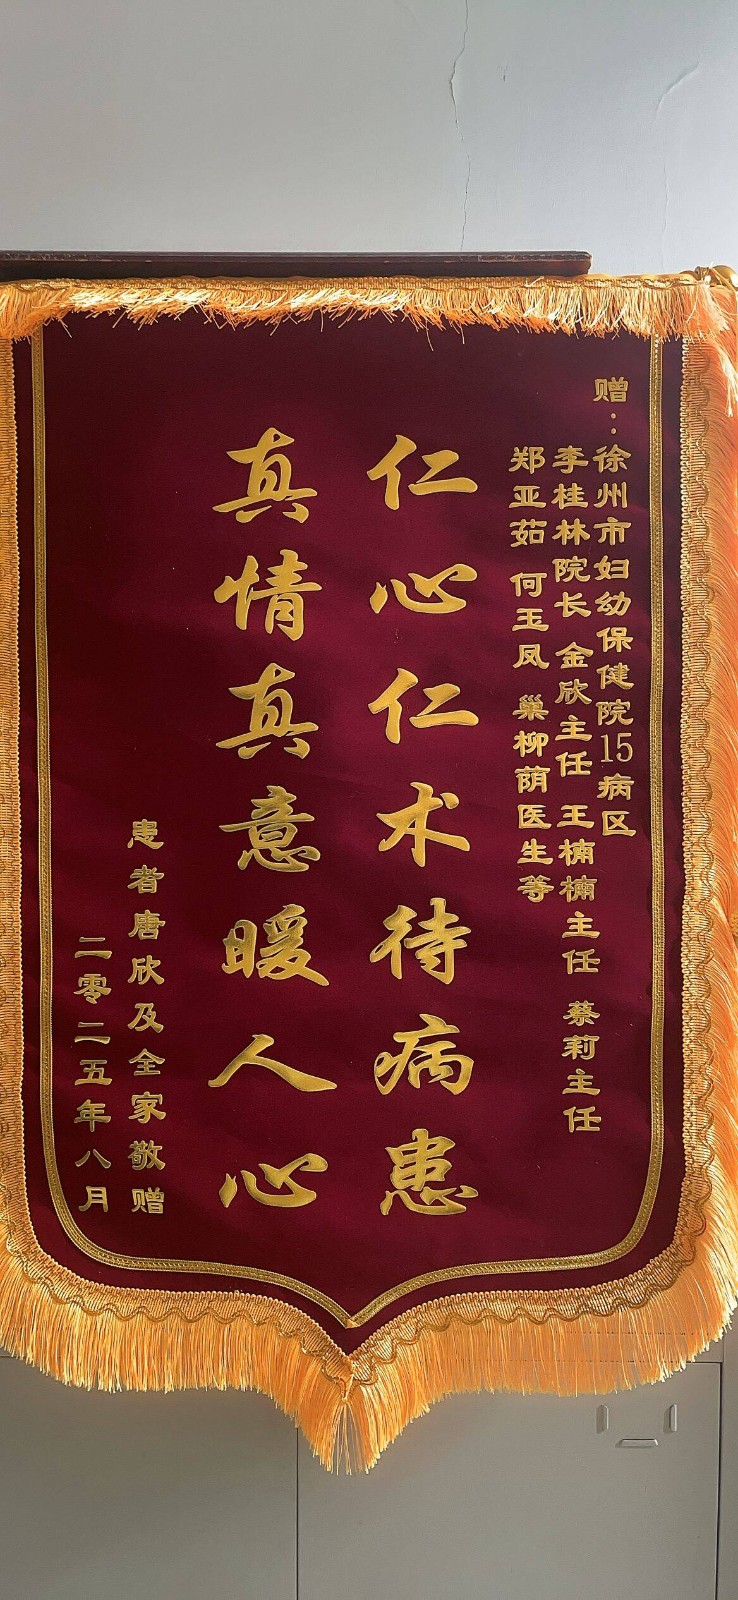 赠：徐州市妇幼保健院15病区
李桂林院长 金欣主任 王楠楠主任 蔡莉主任
郑亚茹 何玉凤 巢柳荫医生等
仁心仁术待病患
真情真意暖人心
患者唐欣及全家敬赠
二零二五年八月